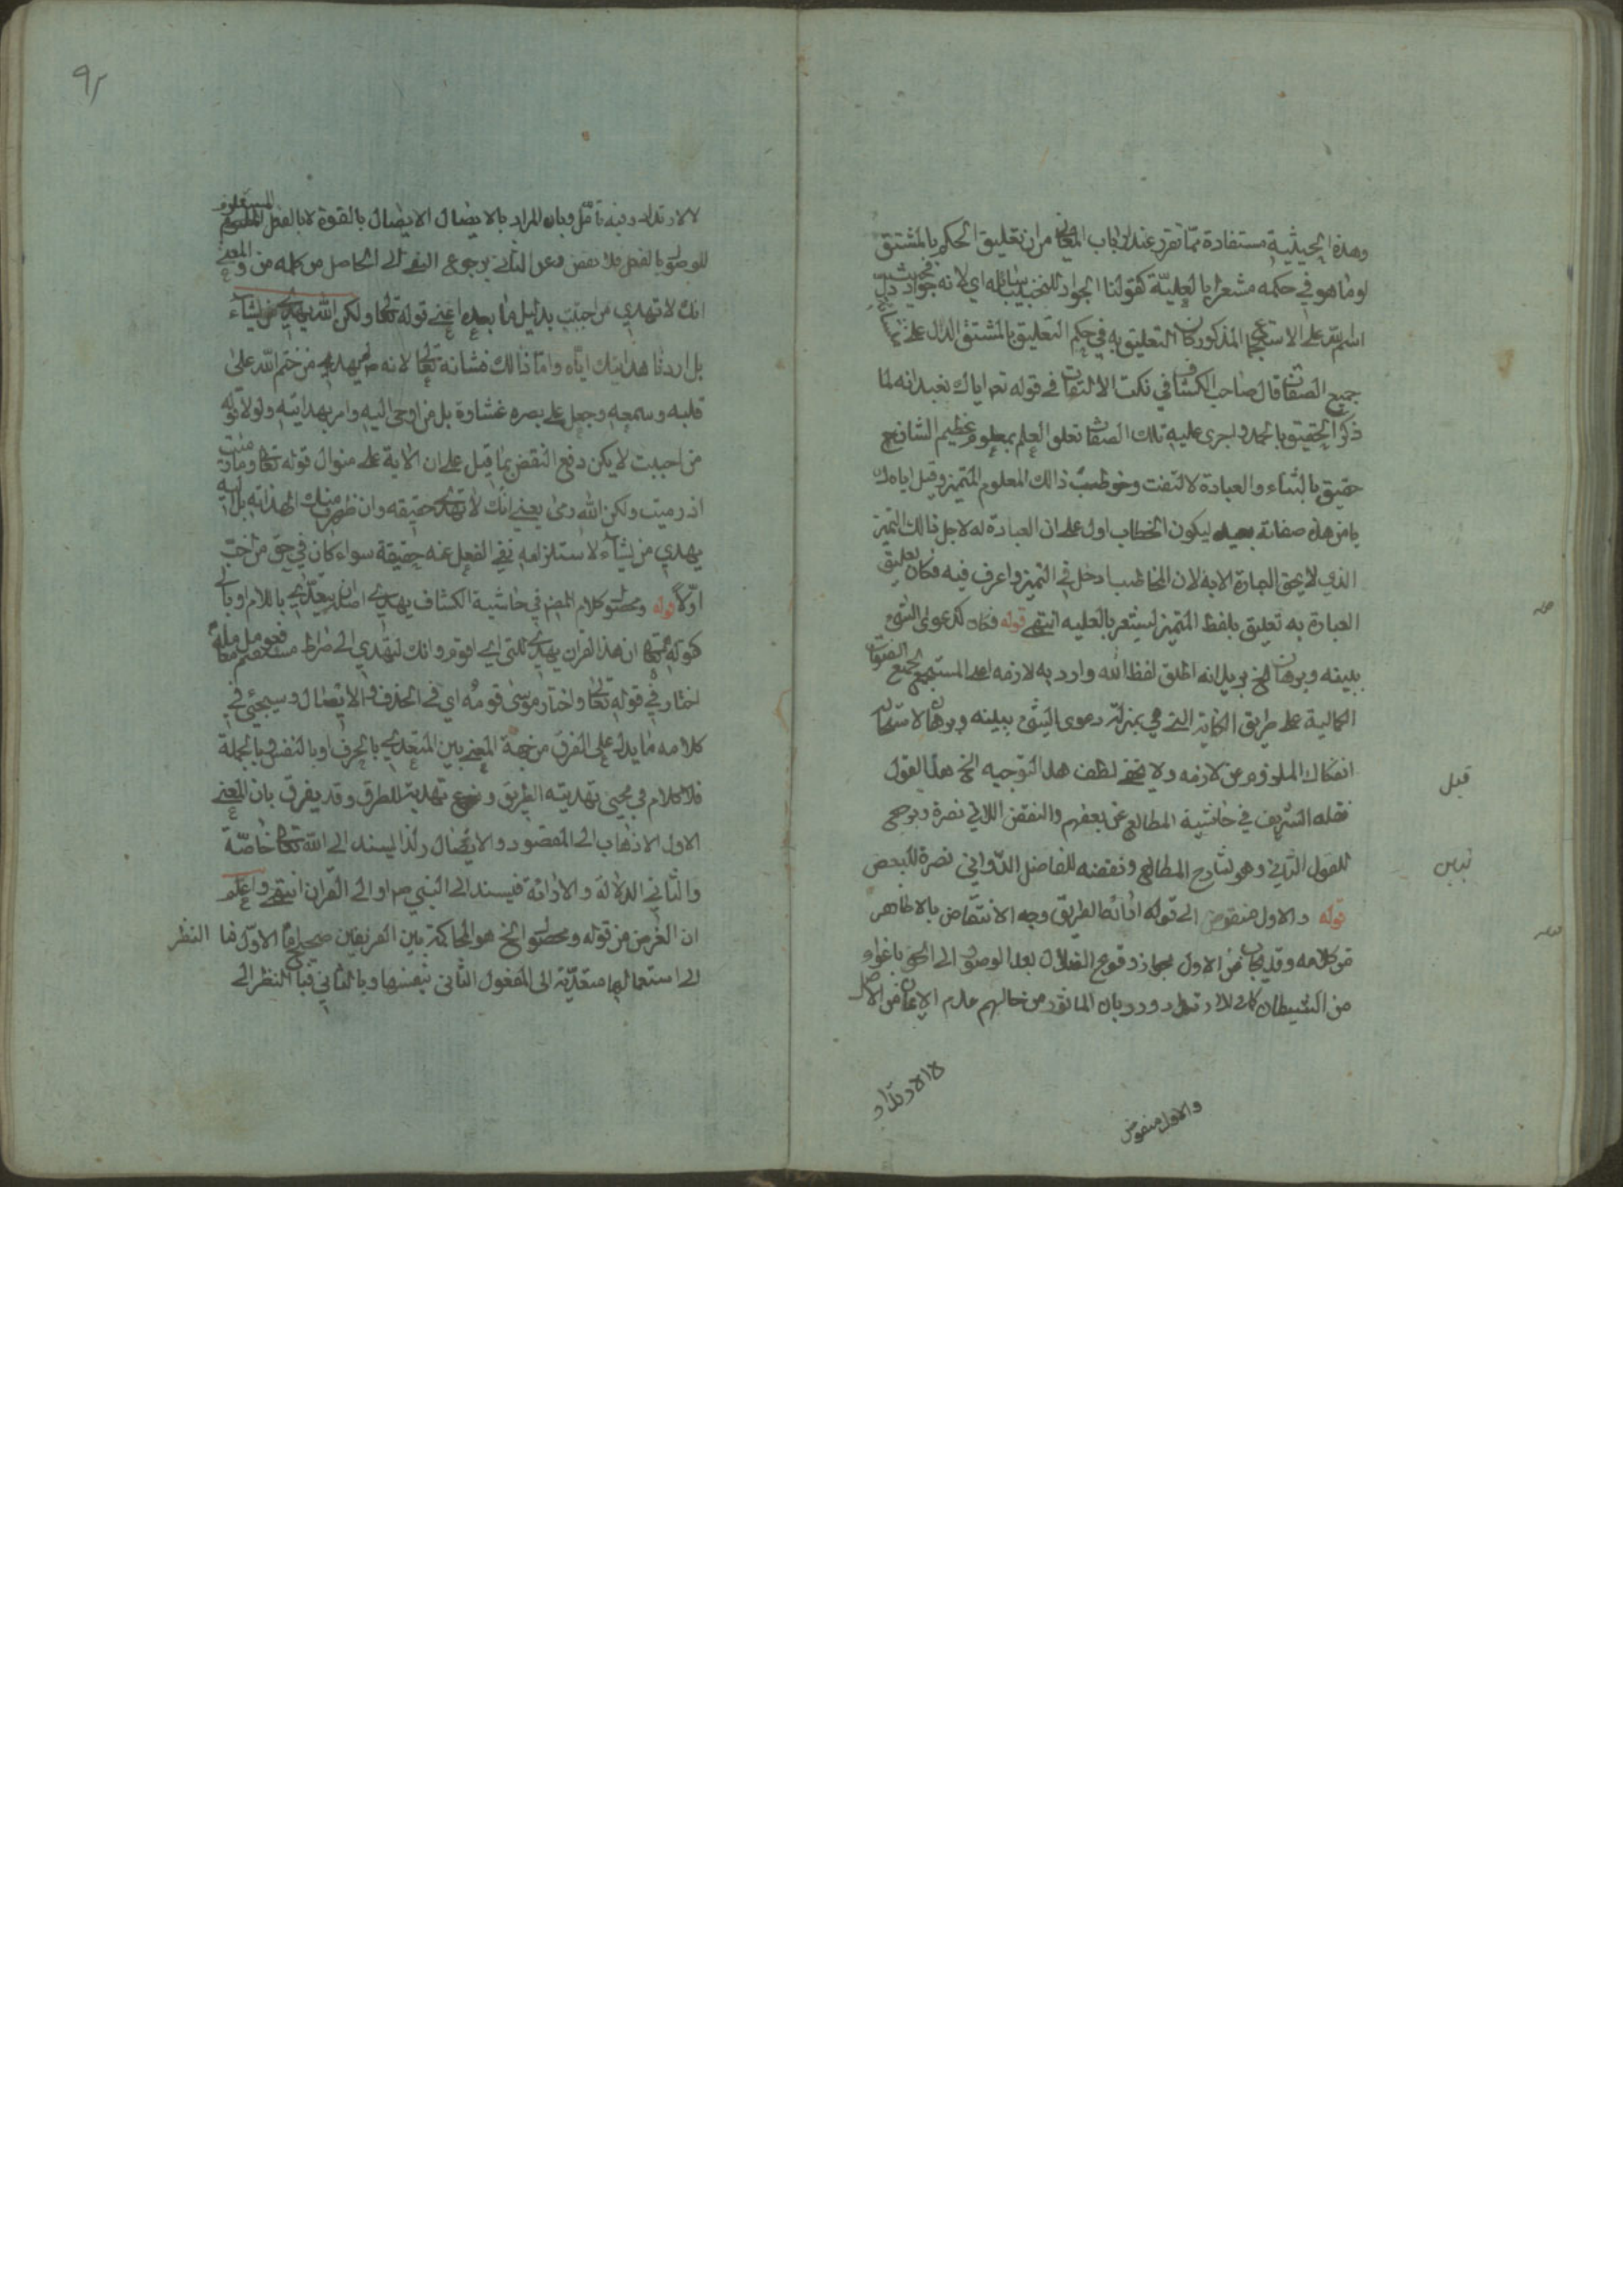 وهذه الحيثية مستفادة مما تقرر عند ارباب المعاني من ان تعليق الحكم بالمشتق
او ما هو في حكمه مشعرا بالعلية كقولنا الجواد لا يخيب سائله اي لانه جواد فحيث دل
اسم الله على الاستجماع المذكور كان التعليق به في حكم التعليق بالمشتق الدال على
جميع الصفات قال صاحب الكشاف في نكت الالتفات في قوله تعم اياك نعبد انه لما
ذكر الحقيق بالحمد واجرى عليه تلك الصفات تعلق العلم بمعلوم عظيم الشان
حقيق بالثناء والعبادة فالتفت وخوطب ذالك المعلوم المتميز وقيل اياك
يا من هذه صفاته نعبد ليكون الخطاب ادل على ان العبادة له لاجل ذالك التميز
الذي لا يحق العبادة الا به لان المخاطب ادخل في التميز واعرف فيه فكان تعليق
العبادة به تعليق بلفظ المتميز ليشعر بالعلية انتهى قوله فكان كدعوى الشئ
ببينة وبرهان الخ يريد انه اطلق لفظ الله واراد به لازمه اعني المستجمع لجميع الصفات
الكمالية على طريق الكناية التي هي بمنزلة دعوى الشئ ببينة وبرهان لاستحالة
انفكاك الملزوم عن لازمه ولا يخفى لطف هذا التوجيه الخ هذا القول
قيل
نقله الشريف في حاشية المطالع عن بعضهم والنقض اللاتي نصرة وترجيح
للقول الثاني وهو لشارح المطالع ونقضه للفاضل الدواني نصرة للبعض
قوله والاول منقوض الى قوله اراءة الطريق وجه الانتقاض بالاظاهر
من كلامه وقد يجاب عن الاول بجواز وقوع الضلال بعد الوصول الى الحق باغواء
من الشيطان كما في الارتداد ورد بان الماثور من حالهم عدم الايمان من الاصل
لا الارتداد
والاول منقوض
٩٢
لا الارتداد وفيه تامل وبان المراد بالايصال الايصال بالقوة لا بالفعل المستلزم
للوصول بالفعل فلا نقض وعن الثاني برجوع النفي الى الحاصل من كلمة من والمعنى
انك لا تهدي من احببت بدليل ما بعده اعني قوله تعالى ولكن الله يهدي من يشاء
بل اردنا هدايتك اياه واما ذالك فشانه تعالى لانه لم يهد من ختم الله على
قلبه وسمعه وجعل على بصره غشاوة بل من اوحى اليه وامر بهدايته ولولا قوله
من احببت لا يكن دفع النقض بما قيل على ان الاية على منوال قوله تعالى وما رميت
اذ رميت ولكن الله رمى يعني انك لا تهدي حقيقة وان ظهر منك الهداية بل الله
يهدي من يشاء لاستلزامه نفي الفعل عنه حقيقة سواء كان في حق من احب
اولا قوله ومحصول كلام المص في حاشية الكشاف يهدي اصله ان يتعدى باللام او بالى
كقوله تعالى ان هذا القران يهدي للتي هي اقوم وانك لتهدي الى صراط مستقيم فعومل معاملة
اختار في قوله تعالى واختار موسى قومه اي في الحذف والايصال وسيجئ في
كلامه ما يدل على الفرق من جهة المعنى بين المتعدي بالحرف او بالنفس وبالجملة
فلا كلام في مجيئ تهدية الطريق وتهدية للطرق وقد يفرق بان المعنى
الاول الاذهاب الى المقصود والايصال ولذا يسند الى الله تعالى خاصة
والثاني الدلالة والاراءة فيسند الى النبي ص او الى القران انتهى واعلم
ان الغرض من قوله ومحصول الخ هو المحاكمة بين الفريقين اما الاول فبالنظر
الى استعمالها متعدية الى المفعول الثاني بنفسها وبالثاني فبالنظر الى